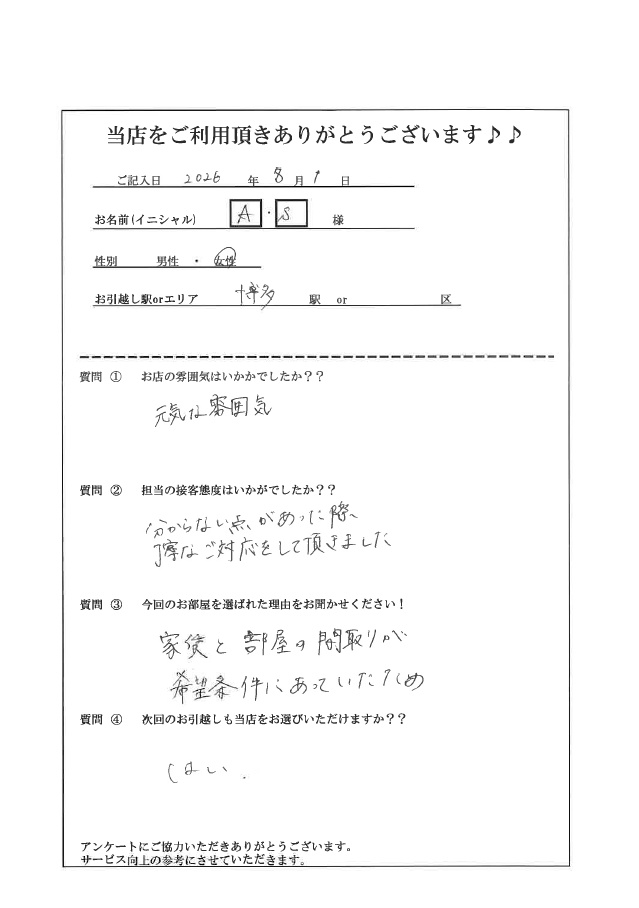 当店をご利用頂きありがとうございます♪♪
ご記入日 2026 年 8 月 1 日
お名前(イニシャル) A・S 様
性別 男性 ・ 女性
お引越し駅orエリア 博多 駅 or 区
質問 ① お店の雰囲気はいかかでしたか??
元気な雰囲気
質問 ② 担当の接客態度はいかがでしたか??
分からない点があった際、
丁寧なご対応をして頂きました
質問 ③ 今回のお部屋を選ばれた理由をお聞かせください!
家賃と部屋の間取りが
希望条件にあっていたため
質問 ④ 次回のお引越しも当店をお選びいただけますか??
はい.
アンケートにご協力いただきありがとうございます。
サービス向上の参考にさせていただきます。